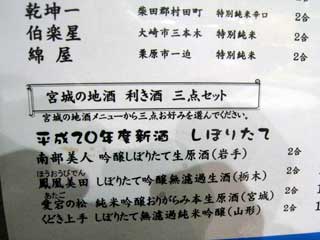 乾坤一 柴田郡村田町 特別純米辛口 2合
伯楽星 大崎市三本木 特別純米 2合
綿屋 栗原市一迫 特別純米 2合
宮城の地酒 利き酒 三点セット
宮城の地酒メニューから三点お好みを選んでください。
平成20年度新酒 しぼりたて
南部美人 吟醸しぼりたて生原酒(岩手) 2合
ほうおうびでん
鳳凰美田 しぼりたて吟醸無濾過生酒(栃木) 2合
あたご
愛宕の松 純米吟醸おりがらみ本生原酒(宮城) 2合
くどき上手 しぼりたて無濾過純米吟醸(山形) 2合